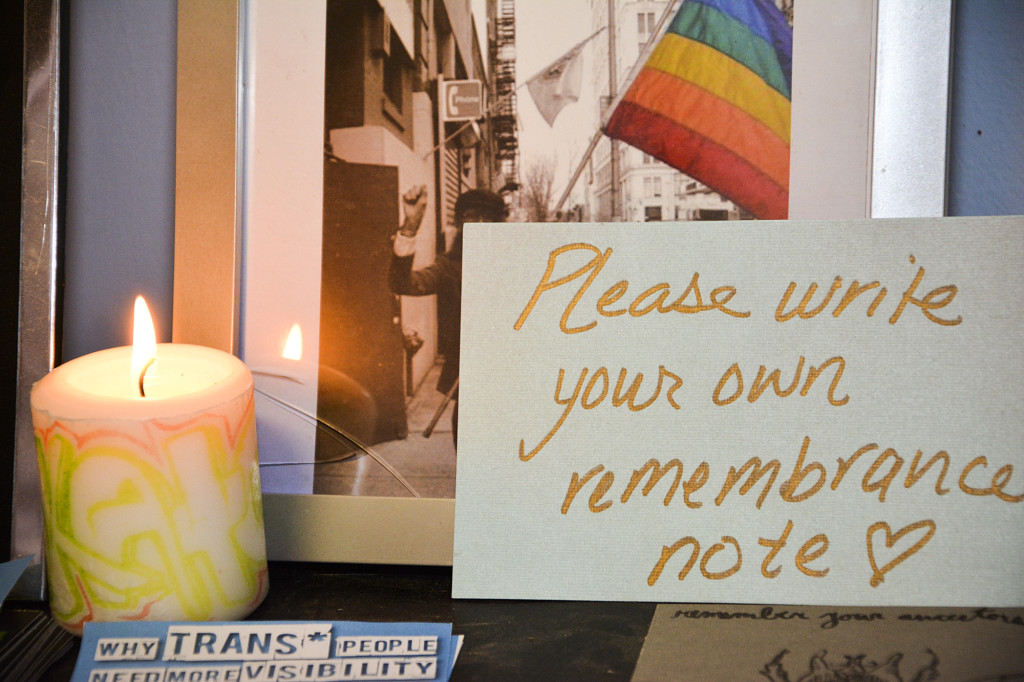 Phone
Please write
your own
remembrance
note ♡
WHY TRANS* PEOPLE
NEED MORE VISIBILITY
remember your ancestors